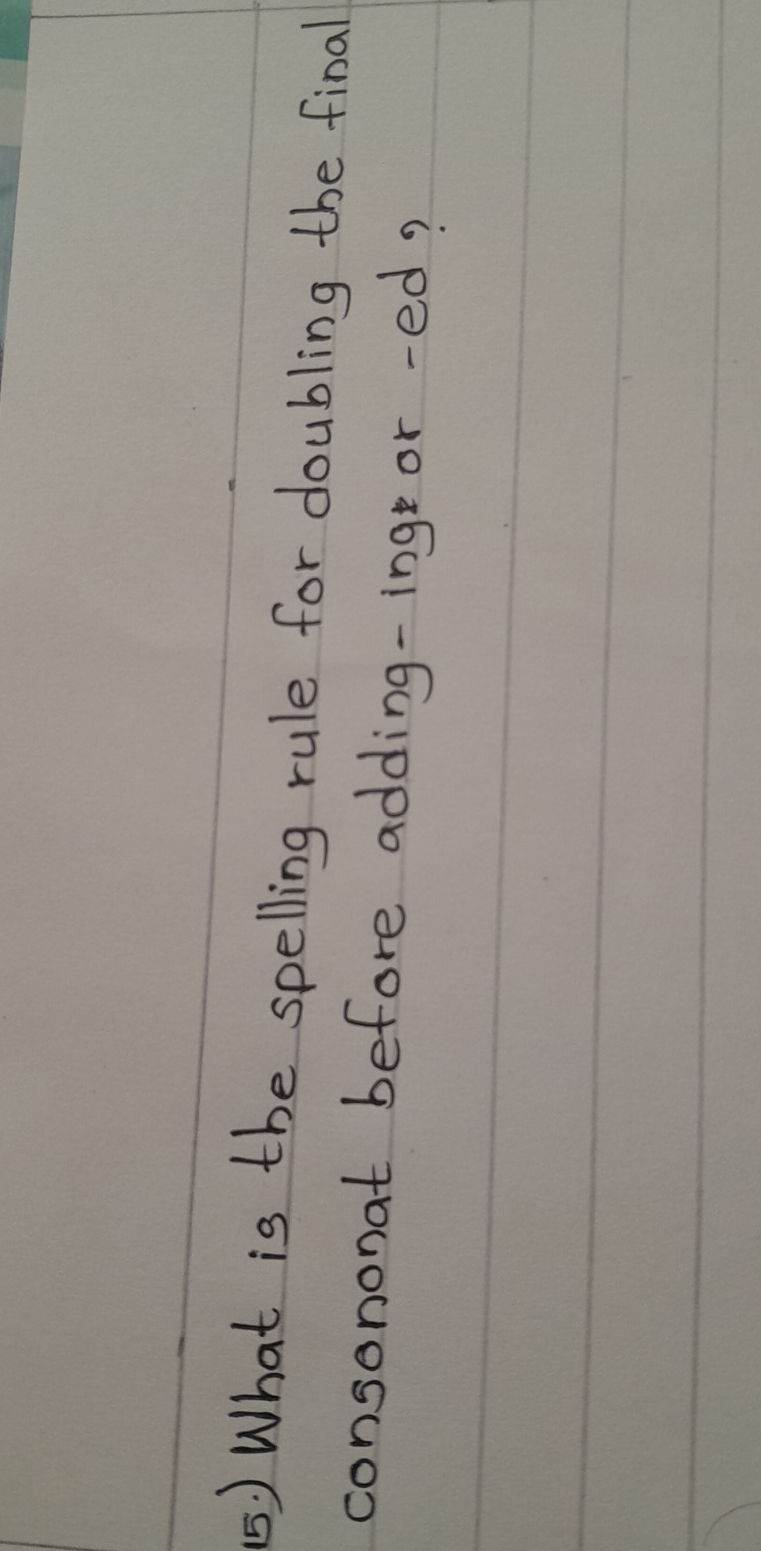 15.) What is the spelling rule for doubling the final
consononat before adding - ing or - ed?